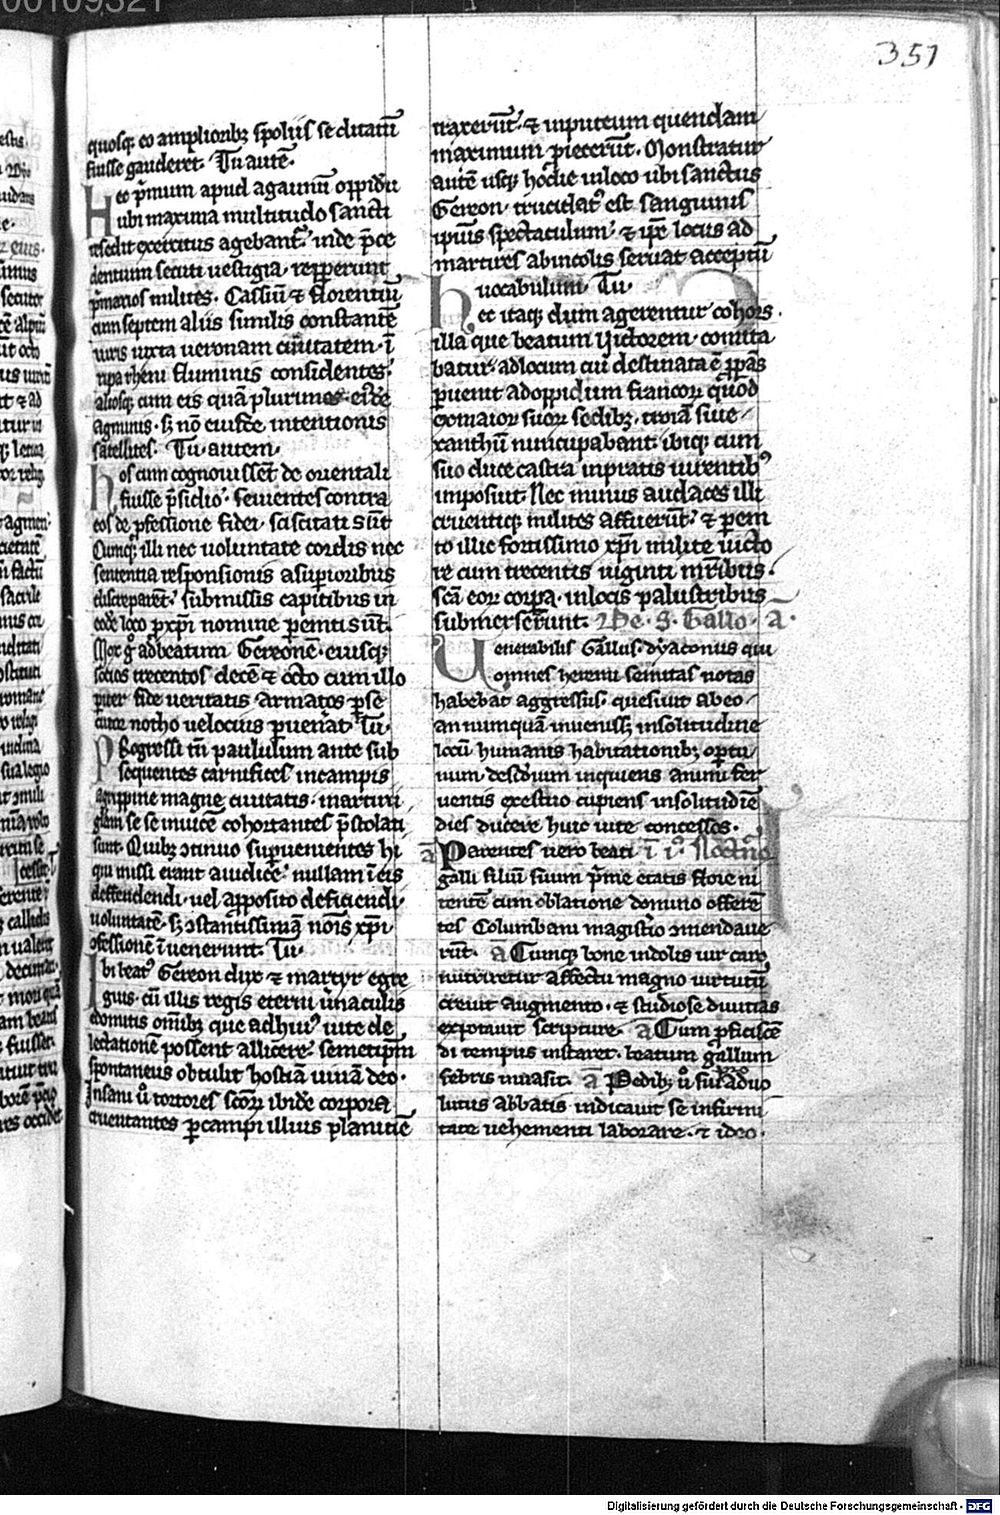 00109321
351
quosq; eo amplioribꝫ spoliis se ditatū
fuisse gauderet. Tu autē.
Hec p̄mum apud agaunū oppidū
ubi maxima multitudo sancti
exercitus agebant᷑. inde p̄ce
dentium secuti uestigia. repperiunt
p̄marios milites. Cassiū ⁊ florentiū
cum septem aliis similis constantie
uiris iuxta ueronam ciuitatem. ī
ripa rheni fluminis considentes.
aliosq; cum eis quā plurimos
agminis. sꝫ nō eiusdē intentionis
satellites. Tu autem.
hos cum cognouissēt de orientali
fuisse p̄sidio. seuientes contra
eos de ꝓfessione fidei. sciscitati sūt
Cumq; illi nec uoluntate cordis nec
sententia responsionis a suꝑioribus
discreparēt. submissis capitibus in
eodē loco ꝓ xp̄i nomine ꝑempti sūt.
Mox ḡ ad beatum Gereonē. eiusq;
socios trecentos decē ⁊ octo cum illo
pariter fide ueritatis armatos ꝑse
cutor notho uelocius ꝑuenerat. Tu.
Progressi tn̄ paululum ante sub
sequentes carnifices in campis
agrippine magne ciuitatis. martirii
gl̄am se se inuicē cohortantes p̄stolati
sunt. Quibꝫ ↄtinuo suꝑuenientes hi
qui missi erant a iudice. nullam ī eis
deffendendi. uel aꝑposito deficiendi.
uoluntatē. sꝫ ↄstantissimā nōis xp̄i.
ↄfessionē īuenerunt. Tu.
Ibi beatꝰ Gereon dux ⁊ martyr egre
gius. cū illis regis eterni uinaculis
edomitis om̄ibꝫ que adhuc uite de
lectationē possent allicere. semetip̄m
spontaneus obtulit hostiā uiuā deo.
Insani ů tortores scōrꝝ ibidē corpora
cruentantes ꝑ campi illius planitiē
traxerūt. ⁊ in puteum quendam
maximum ꝓiecerūt. Monstratur
autē usq; hodie in loco ubi sanctus
Gereon. trucidatꝰ est sanguinis
ipsius spectaculum. ⁊ ip̄e locus ad
martires ab incolis seruat acceptū
uocabulum. Tu.
hec itaq; dum agerentur cohors.
illa que beatum Uictorem. comita
batur. ad locum cui destinata ē ꝓꝑās
ꝑuenit ad oppidum francorꝝ quod
ex maiorꝝ suorꝝ sedibꝫ. troiā siue
xanthū nuncupabant. ibiq; cum
suo duce castra in pratis uirentibꝰ
imposuit. Nec minus audaces illi
cruentiq; milites affuerūt. ⁊ ꝑem
to illic fortissimo xp̄i milite uicto
re cum trecentis uiginti mr̄ibus.
scā eorꝝ corꝑa. in locis palustribus
submerserunt. De. S. Gallo. ā.
Uenerabilis Gallus. dyaconus qui
omnes heremi semitas notas
habebat aggressus. quesiuit ab eo.
an numquā inuenissꝫ in solitudine
locū humanis habitationibꝫ oportu
num. desideriūm inquiens animi fer
uentis exestuo cupiens in solitudīe
dies ducere huic uite concessos.
ā Parentes uero beati ī i. Noctūo
galli filiū suum p̄me etatis flore ni
tentē cum oblatione domino offerē
tes Columbani magistio ↄmendaue
rūt. ā Cumq; bone indolis uir cum
nutriretur affectu magno uirtutū
creuit augmento. ⁊ studiose diuitias
expotauit scripture. ā Cum ꝓficiscē
di tempus instaret. beatum gallum
febris inuasit. ā Pedibꝫ ů
lutus abbatis indicauit se infirmi
tate uehementi laborare. ⁊ ideo.
Digitalisierung gefördert durch die Deutsche Forschungsgemeinschaft - DFG